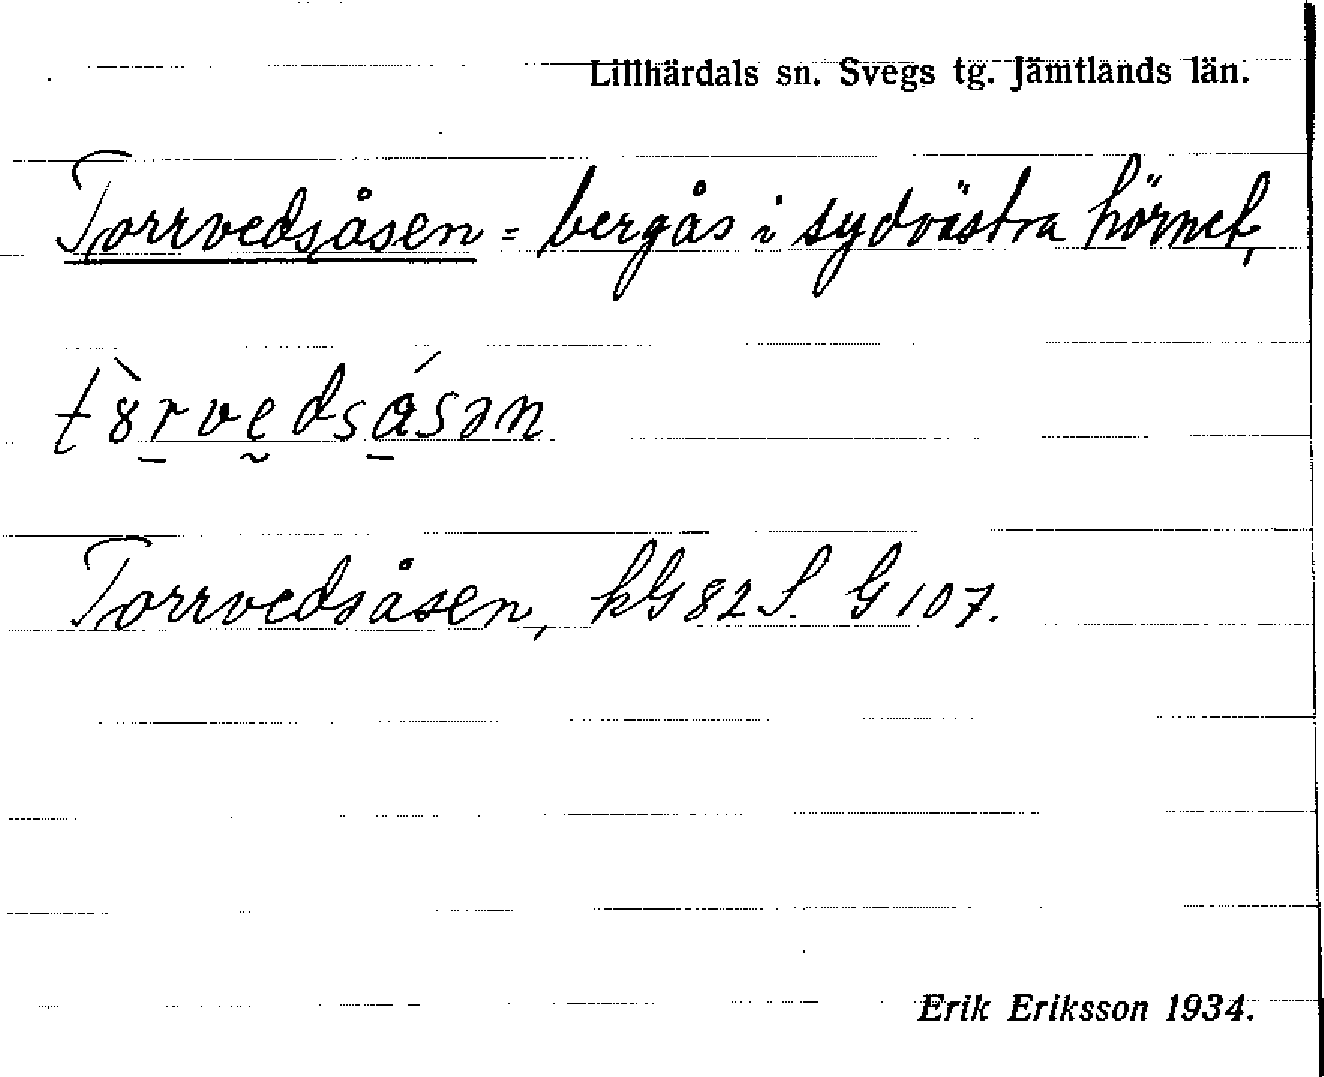 Lillhärdals sn. Svegs tg. Jämtlands län.
Torrvedsåsen = bergås i sydvästra hörnet,
t8̀r̠vḛdsá̠sən
Torrvedsåsen, kG 82 S. G 107.
Erik Eriksson 1934.